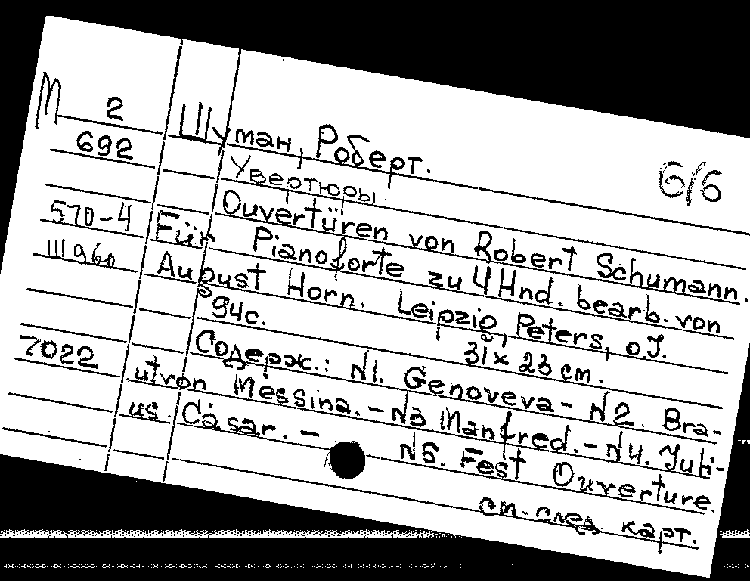 М 2 Шуман, Роберт.
692 Увертюры. б/б
Ouvertüren von Robert Schumann.
570-4 Für Pianoforte zu 4 Hnd. bearb. von
Ш960 August Horn. Leipzig, Peters, o.J.
94с. 31 x 23 cm.
7022 Содерж.: N1. Genoveva - N2. Bra-
ut von Messina. - N3 Manfred. - N4. Juli-
us Cäsar. - N5. Fest Ouverture.
см. след карт.